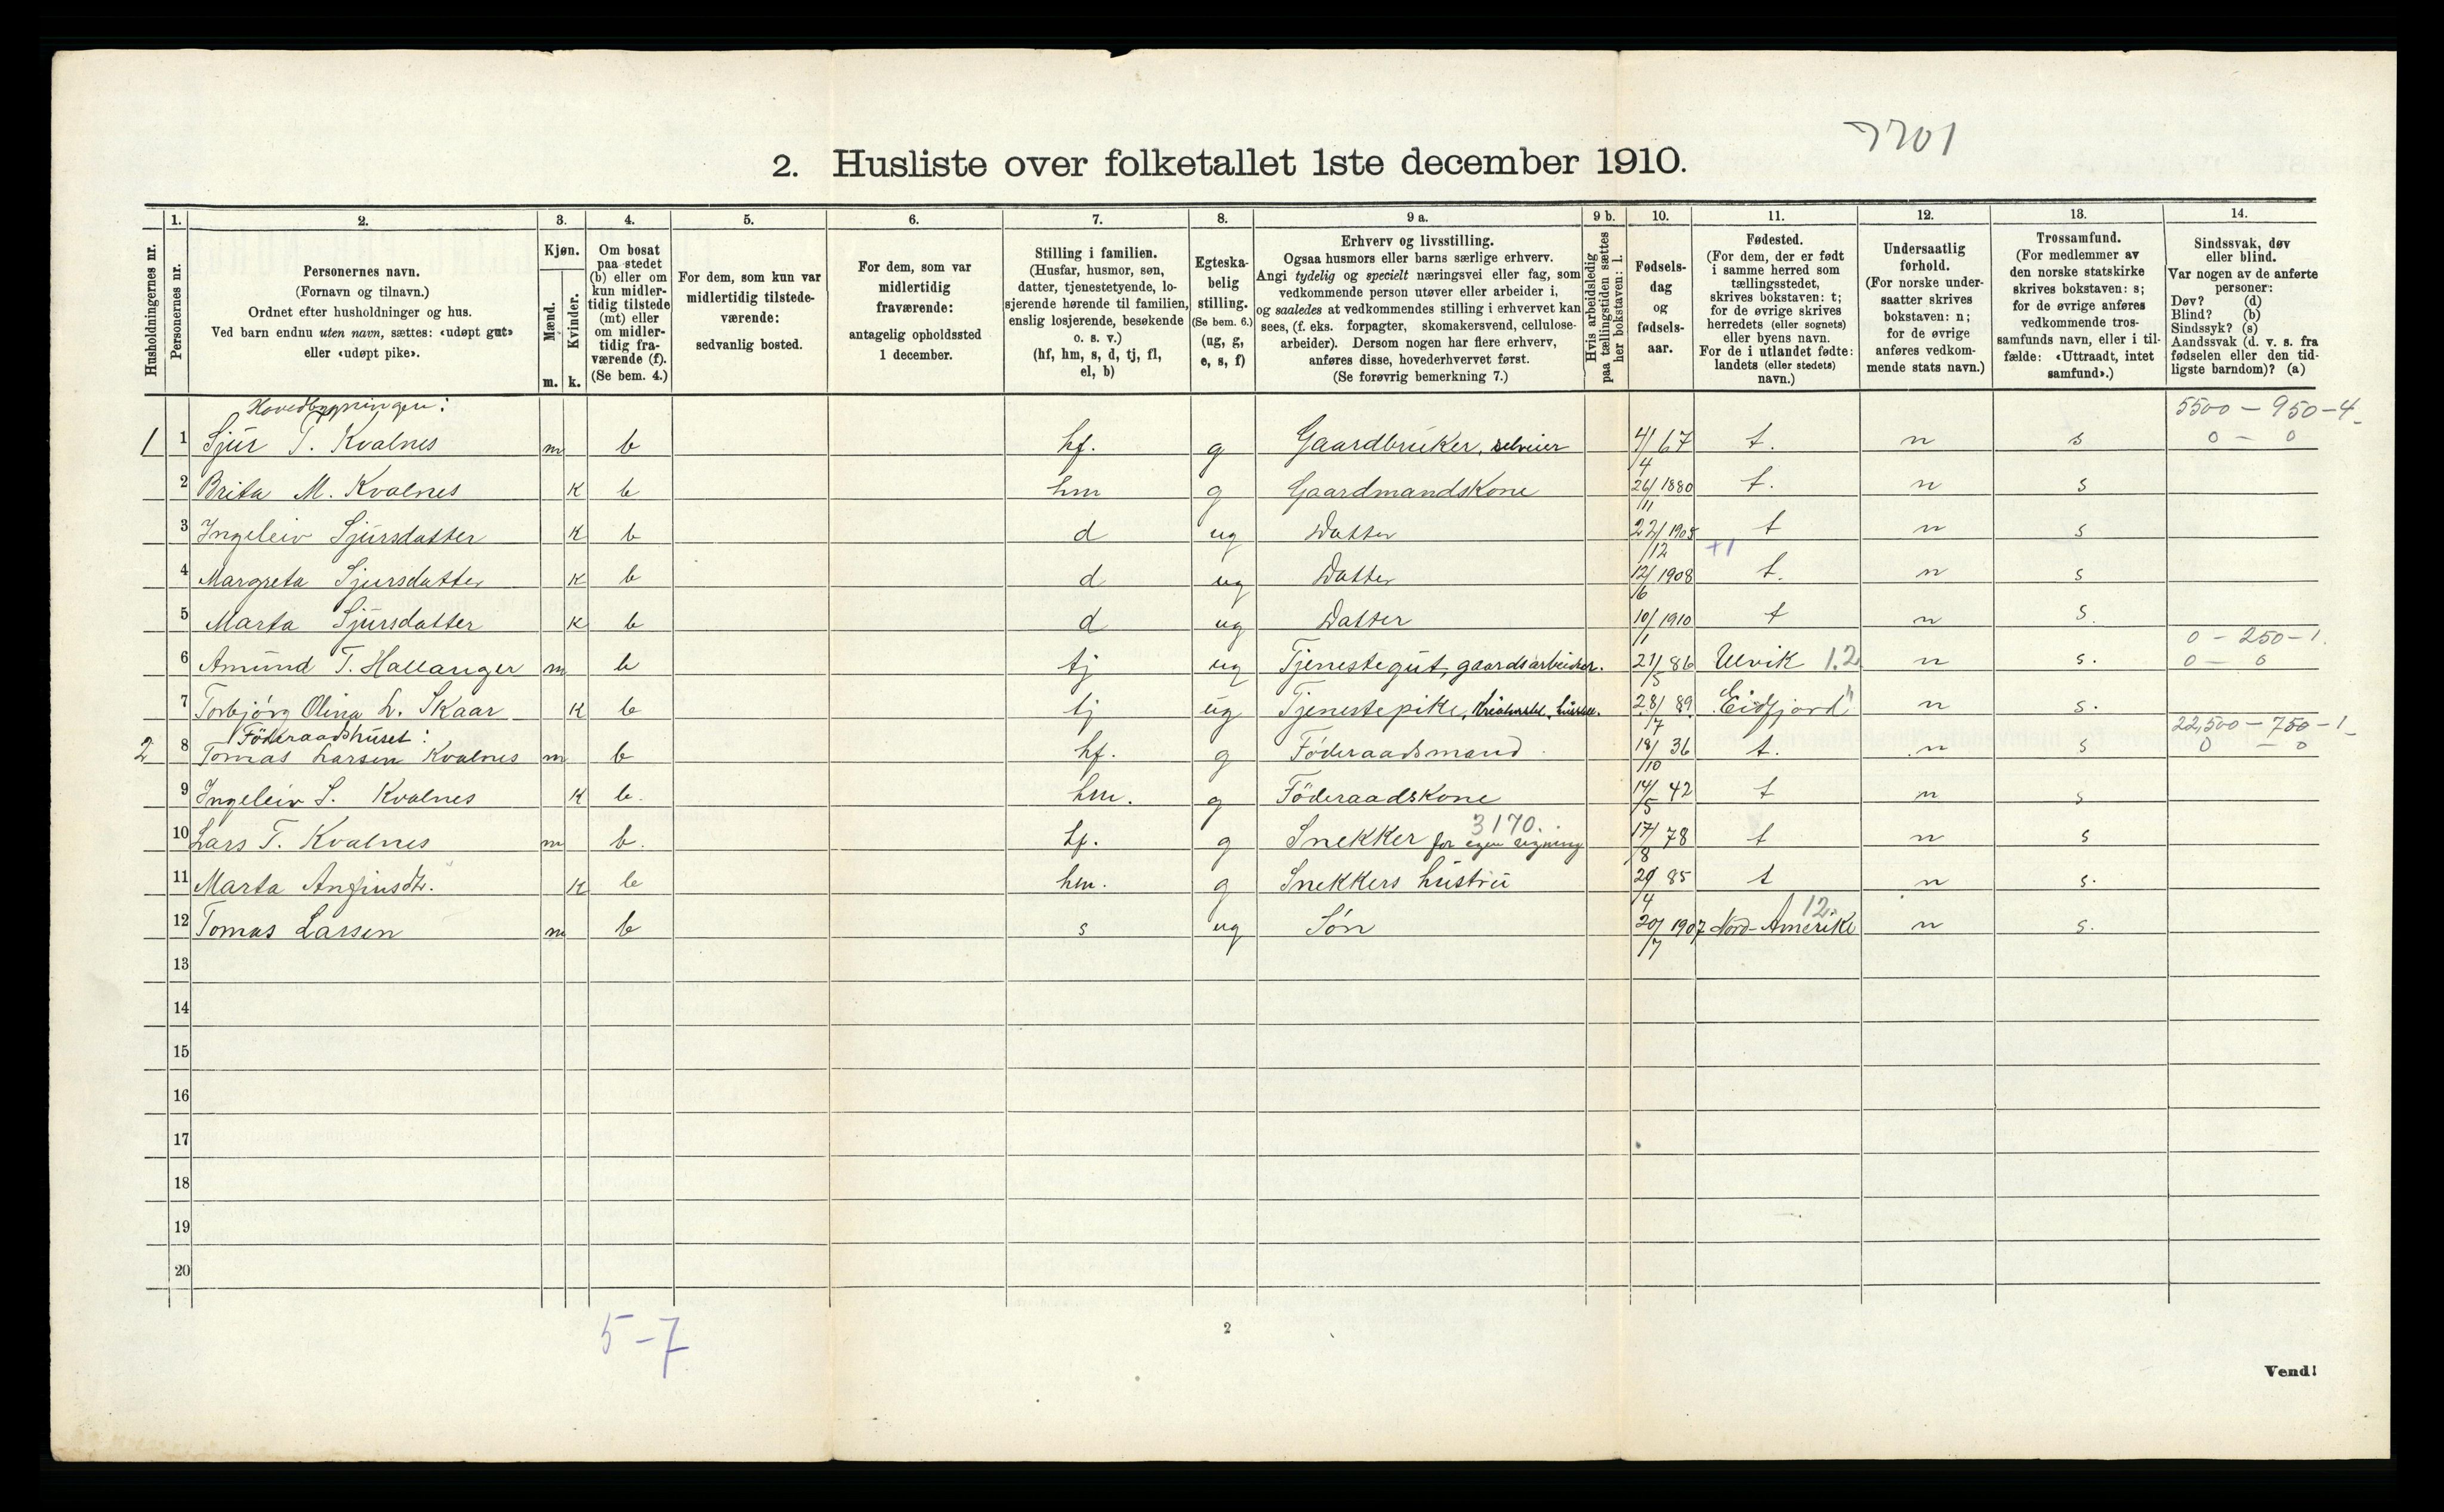 7701
2. Husliste over folketallet 1ste december 1910.
Husholdningernes nr.
1. Personernes nr.
2. Personernes navn.
(Fornavn og tilnavn.)
Ordnet efter husholdninger og hus.
Ved barn endnu uten navn, sættes: «udøpt gut»
eller «udøpt pike».
3. Kjøn.
Mænd. m.
Kvinder. k.
4. Om bosat
paa stedet
(b) eller om
kun midler-
tidig tilstede
(mt) eller
om midler-
tidig fra-
værende (f).
(Se bem. 4.)
5. For dem, som kun var
midlertidig tilstede-
værende:
sedvanlig bosted.
6. For dem, som var
midlertidig
fraværende:
antagelig opholdssted
1 december.
7. Stilling i familien.
(Husfar, husmor, søn,
datter, tjenestetyende, lo-
sjerende hørende til familien,
enslig losjerende, besøkende
o. s. v.)
(hf, hm, s, d, tj, fl,
el, b)
8. Egteska-
belig
stilling.
(Se bem. 6.)
(ug, g,
e, s, f)
9 a. Erhverv og livsstilling.
Ogsaa husmors eller barns særlige erhverv.
Angi tydelig og specielt næringsvei eller fag, som
vedkommende person utøver eller arbeider i,
og saaledes at vedkommendes stilling i erhvervet kan
sees, (f. eks. forpagter, skomakersvend, cellulose-
arbeider). Dersom nogen har flere erhverv,
anføres disse, hovederhvervet først.
(Se forøvrig bemerkning 7.)
9 b. Hvis arbeidsledig
paa tællingstiden sættes
her bokstaven: l.
10. Fødsels-
dag
og
fødsels-
aar.
11. Fødested.
(For dem, der er født
i samme herred som
tællingsstedet,
skrives bokstaven: t;
for de øvrige skrives
herredets (eller sognets)
eller byens navn.
For de i utlandet fødte:
landets (eller stedets)
navn.)
12. Undersaatlig
forhold.
(For norske under-
saatter skrives
bokstaven: n;
for de øvrige
anføres vedkom-
mende stats navn.)
13. Trossamfund.
(For medlemmer av
den norske statskirke
skrives bokstaven: s;
for de øvrige anføres
vedkommende tros-
samfunds navn, eller i til-
fælde: «Uttraadt, intet
samfund».)
14. Sindssvak, døv
eller blind.
Var nogen av de anførte
personer:
Døv? (d)
Blind? (b)
Sindssyk? (s)
Aandssvak (d. v. s. fra
fødselen eller den tid-
ligste barndom)? (a)
Hovedbygningen: 5500 – 950 – 4
1 1 Sjur T. Kvalnes m b hf. g Gaardbruker, selveier 4/4 67 t. n s 0 – 0
2 Brita M. Kvalnes k b hm g Gaardmandskone 26/11 1880 t. n s
3 Ingeleiv Sjursdatter k b d ug Datter 22/12 1905 t n s
+1
4 Margreta Sjursdatter k b d ug Datter 12/6 1908 t. n s
5 Marta Sjursdatter k b d ug Datter 10/1 1910 t n s.
0 – 250 – 1.
6 Amund T. Hallanger m b tj ug Tjenestegut, gaardsarbeider. 21/5 86 Ulvik 1.2 n s. 0 – 0
7 Torbjörg Olina L. Skaar k b tj ug Tjenestepike, Kreaturstel, husstel. 28/7 89 Eidfjord " n s.
Föderaadshuset: 22,500 – 750 – 1
2 8 Tomas Larsen Kvalnes m b hf. g Föderaadsmand 18/10 36 t. n s 0 – 0
9 Ingeleiv S. Kvalnes k b. hm. g Föderaadskone 14/5 42 t n s
3170.
10 Lars T. Kvalnes m b. hf. g Snekker for egen regning 17/8 78 t n s
11 Marta Anfinsdtr. k b hm. g Snekkers hustru 29/4 85 t n s.
12.
12 Tomas Larsen m b s ug Sön 20/7 1907 Nord-Amerike n s.
13
14
15
16
17
18
19
20
5 – 7
2
Vend!